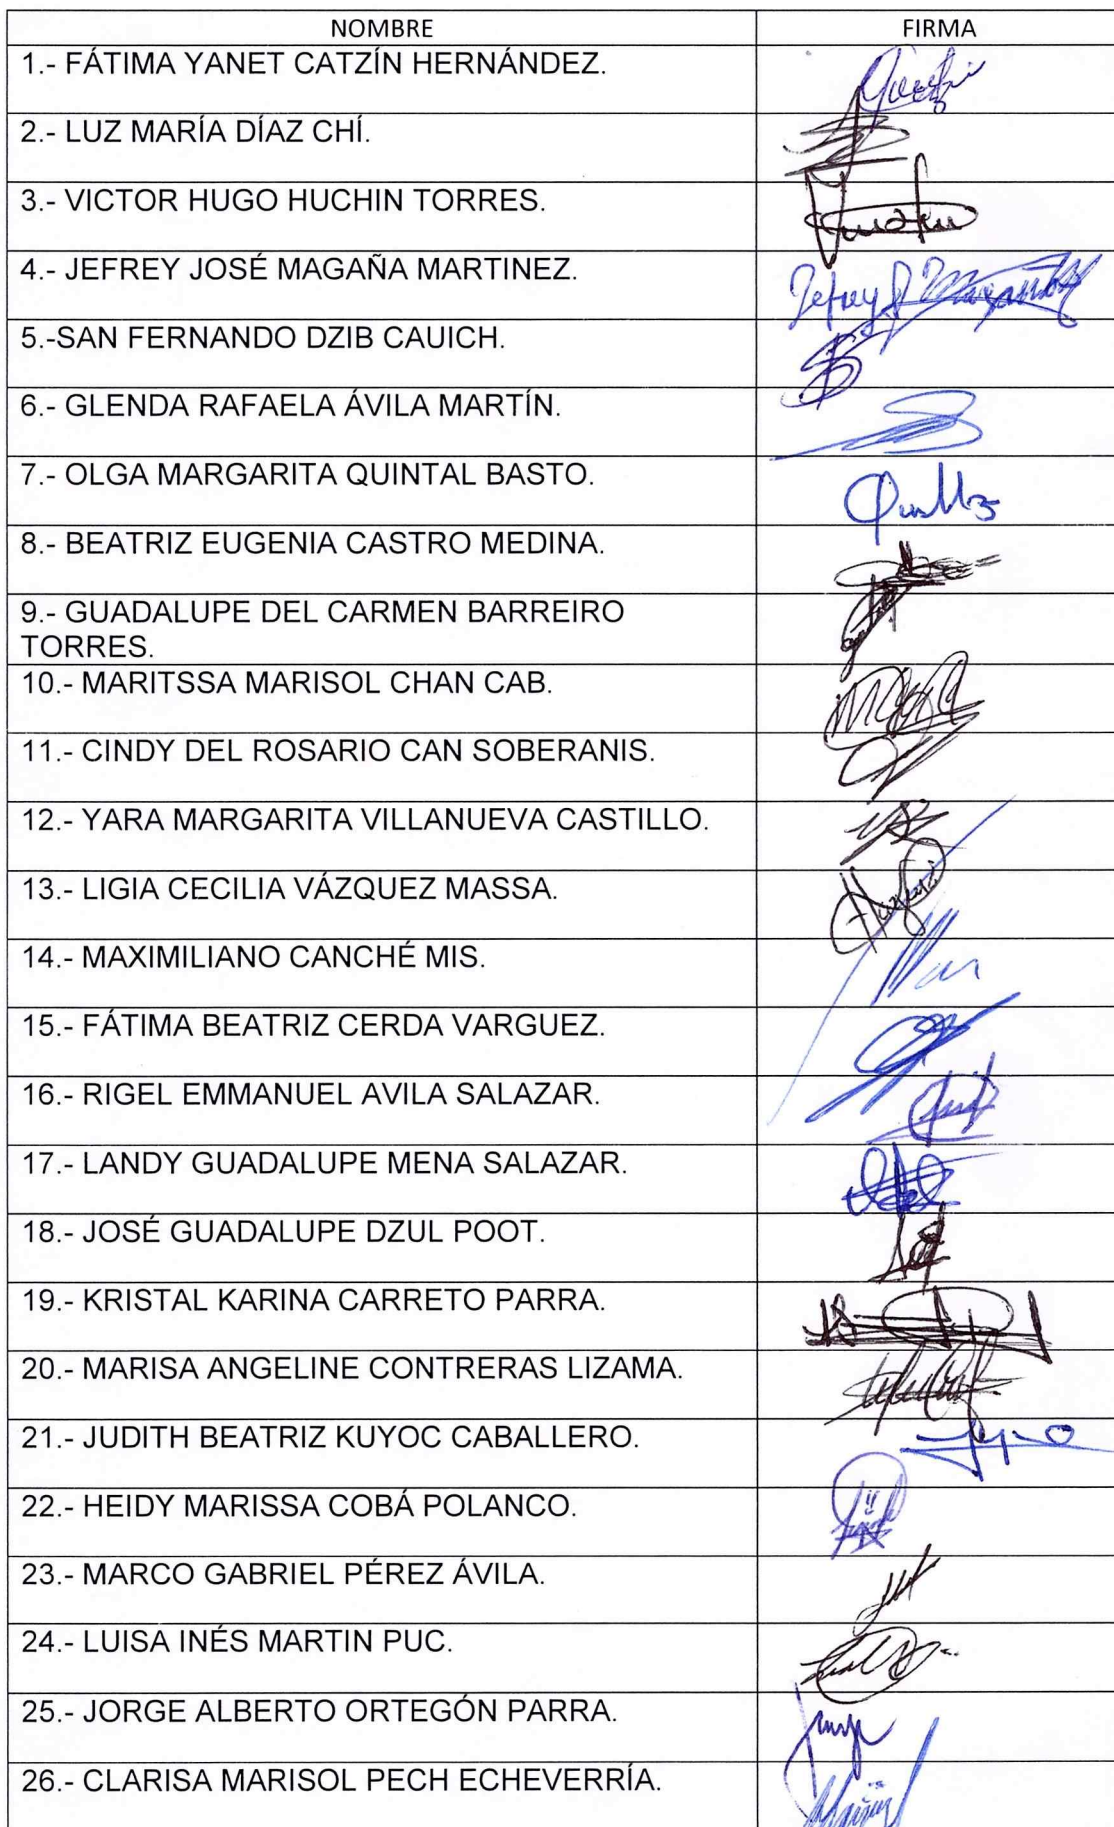 NOMBRE FIRMA
1.- FÁTIMA YANET CATZÍN HERNÁNDEZ.
2.- LUZ MARÍA DÍAZ CHÍ.
3.- VICTOR HUGO HUCHIN TORRES.
4.- JEFREY JOSÉ MAGAÑA MARTINEZ.
5.-SAN FERNANDO DZIB CAUICH.
6.- GLENDA RAFAELA ÁVILA MARTÍN.
7.- OLGA MARGARITA QUINTAL BASTO.
8.- BEATRIZ EUGENIA CASTRO MEDINA.
9.- GUADALUPE DEL CARMEN BARREIRO
TORRES.
10.- MARITSSA MARISOL CHAN CAB.
11.- CINDY DEL ROSARIO CAN SOBERANIS.
12.- YARA MARGARITA VILLANUEVA CASTILLO.
13.- LIGIA CECILIA VÁZQUEZ MASSA.
14.- MAXIMILIANO CANCHÉ MIS.
15.- FÁTIMA BEATRIZ CERDA VARGUEZ.
16.- RIGEL EMMANUEL AVILA SALAZAR.
17.- LANDY GUADALUPE MENA SALAZAR.
18.- JOSÉ GUADALUPE DZUL POOT.
19.- KRISTAL KARINA CARRETO PARRA.
20.- MARISA ANGELINE CONTRERAS LIZAMA.
21.- JUDITH BEATRIZ KUYOC CABALLERO.
22.- HEIDY MARISSA COBÁ POLANCO.
23.- MARCO GABRIEL PÉREZ ÁVILA.
24.- LUISA INÉS MARTIN PUC.
25.- JORGE ALBERTO ORTEGÓN PARRA.
26.- CLARISA MARISOL PECH ECHEVERRÍA.